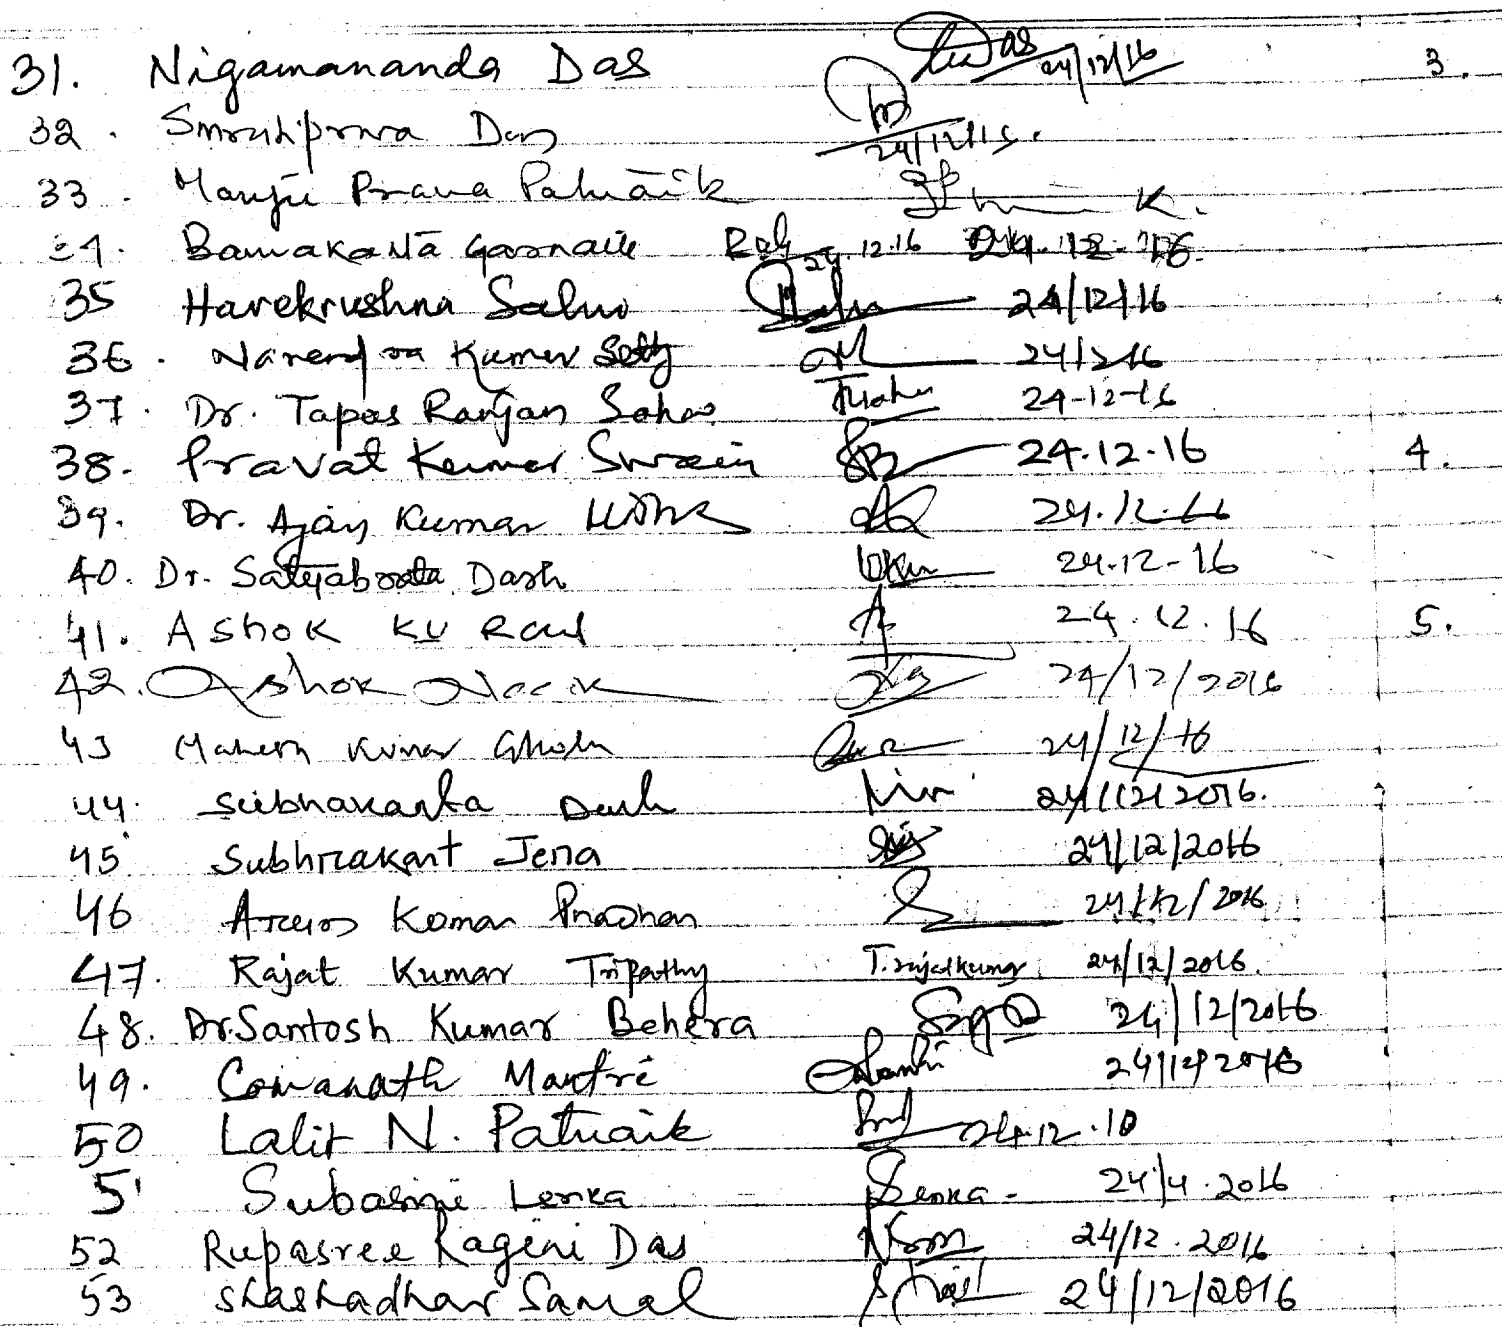 31. Nigamananda Das Das 24/12/16 3.
32. Smrutiprava Das 24/12/15.
33. Manju Prava Patnaik
Bamakanta Garnaik 24.12.16 24.12.16
35 Harekrushna Sahu Sahu 24/12/16
36. Narendra Kumar Sethy 24/12/16
37. Dr. Tapas Ranjan Sahoo 24-12-16
38. Pravat Kumar Swain 24.12.16 4.
39. Dr. Ajay Kumar 24.12.16
40. Dr. Satyabrata Dash 24-12-16
41. Ashok Ku Raul 24.12.16 5.
42. Ashok Naik 24/12/2016
43 Mahesh Kumar 24/12/16
44. Subhakanta Dash 24/12/2016.
45 Subhrakant Jena 24/12/2016
46 Kumar Pradhan 24/12/2016
47. Rajat Kumar Tripathy T. rajatkumar 24/12/2016.
48. Dr. Santosh Kumar Behera 24/12/2016
49. Mantri 24/12/2016
50 Lalit N. Patnaik 24.12.10
51 Subasini Lenka Lenka 24/4.2016
52 Rupasree Ragini Das 24/12.2016
53 Shashadhar Samal 24/12/2016